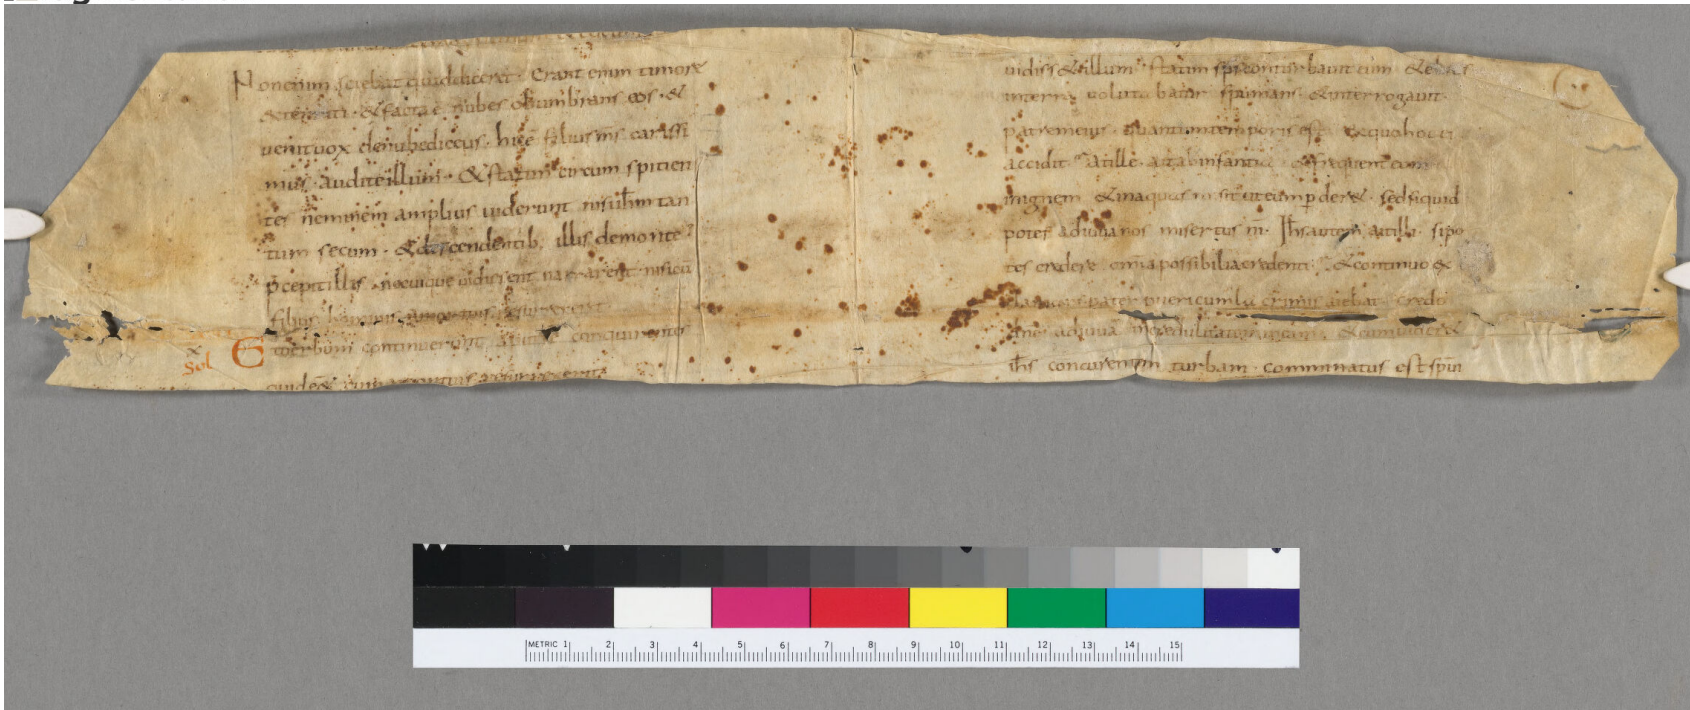 Non enim sciebat quid diceret · Erant enim timore
&territi · & facta ē nubes obumbrans eos · &
uenit uox denube dicens · hic ē filius m̄s carissi
mus · audite illum · & statim circum spicien
tes neminem amplius uiderunt nisi ih̄m tan
tum secum · & descendentib; illis demonte
p̄cepit illis · ne cuique uidissent narrarent · nisi cū
filius hominis amortuis resurrexerit
x
Sol
& uerbum continuerunt conquirentes
uidiss& illum · statim sp̄s conturbauit eum · &
interrā uolutabatur spumans · & interrogauit ·
patrem eius · quantum temporis est · ex quo hoc ei
accidit · at ille ait abinfantia · & frequent eum
inignem · & inaquas misit ut eum p̄der& · sed siquid
potes adiuua nos misertus n̄i · Ih̄s autem ait illi · sipo
tes credere omīa possibilia credenti · & continuo ex
clamans pater puericum lacrimis aiebat · Credo
dn̄e adiuua incredulitatem meam · & cum uider&
ih̄s concurentem turbam · comminatus est sp̄ui
METRIC 1 2 3 4 5 6 7 8 9 10 11 12 13 14 15